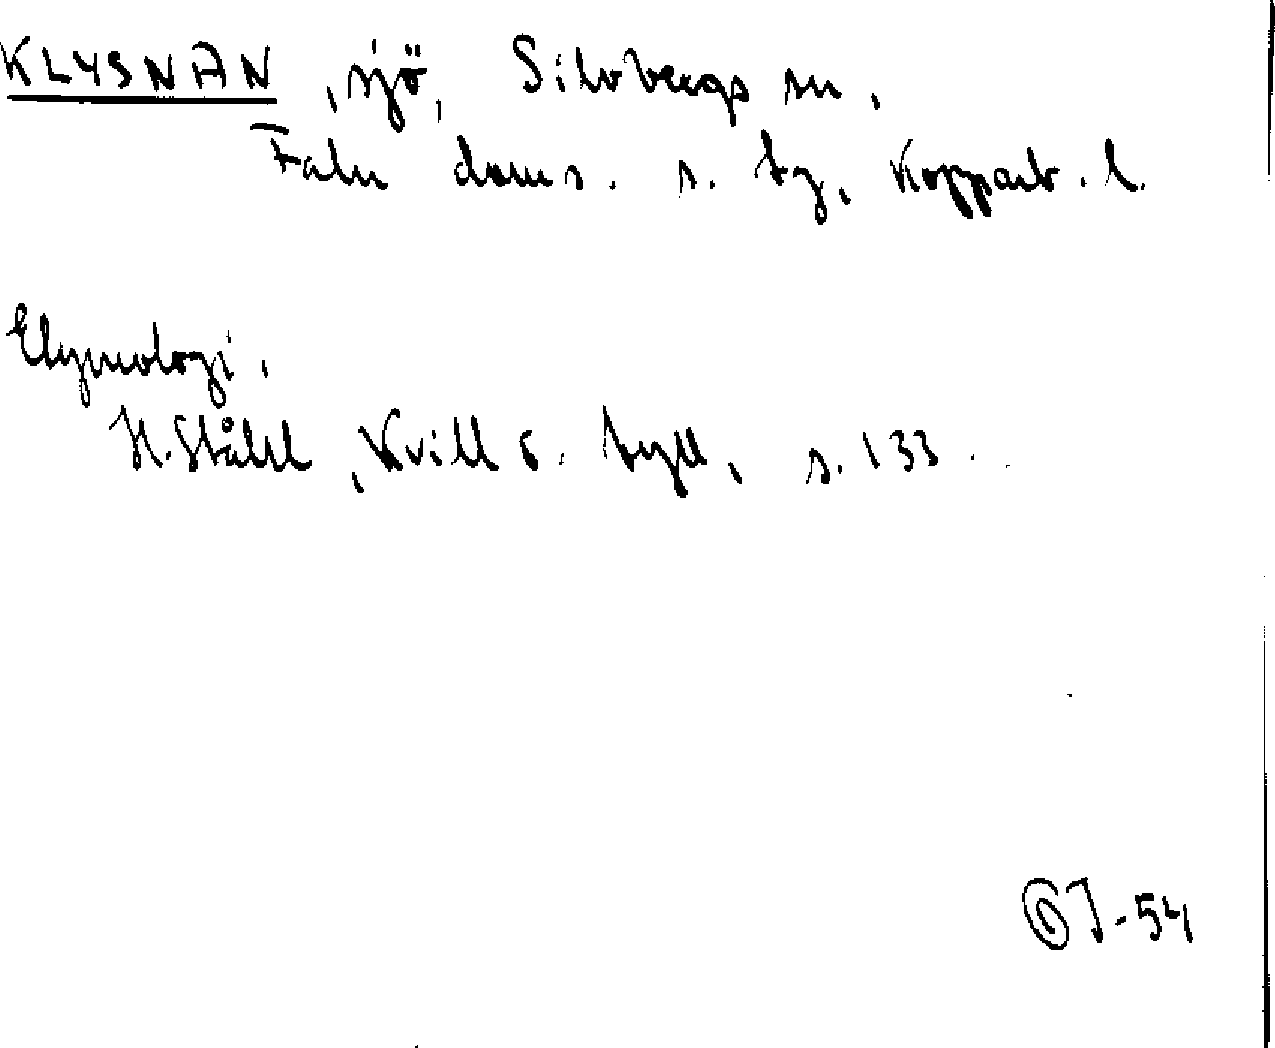 KLYSNAN, sjö, Silvbergs sn.
Falu doms. s. tg, Kopparb. l.
Etymologi.
H. Ståhl, Kvill o. tyll, s. 133.
OJ-54